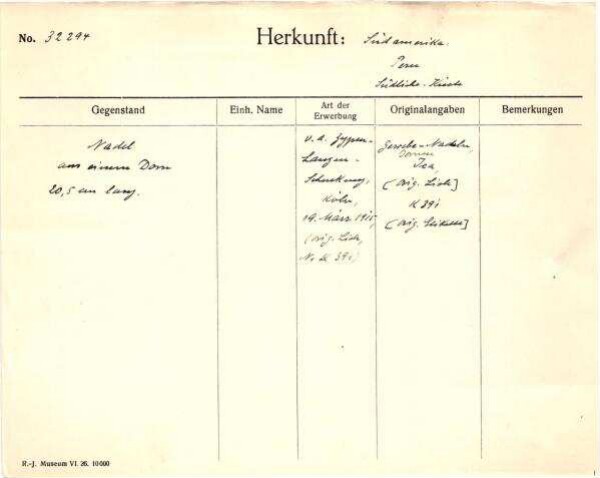 No. 32294
Herkunft: Südamerika.
Peru
Südliche Küste
Gegenstand
Einh. Name
Art der Erwerbung
Originalangaben
Bemerkungen
Nadel
aus einem Dorn
20,5 cm lang.
v. d. Zypen-
Langen-
Schenkung,
Köln,
19. März 1915,
(orig. List,
No K 391)
Gewebe-Nadeln,
Dornen
Ica,
(orig. List]
K 391
(orig. Etikette]
R.-J. Museum VI. 26. 10000